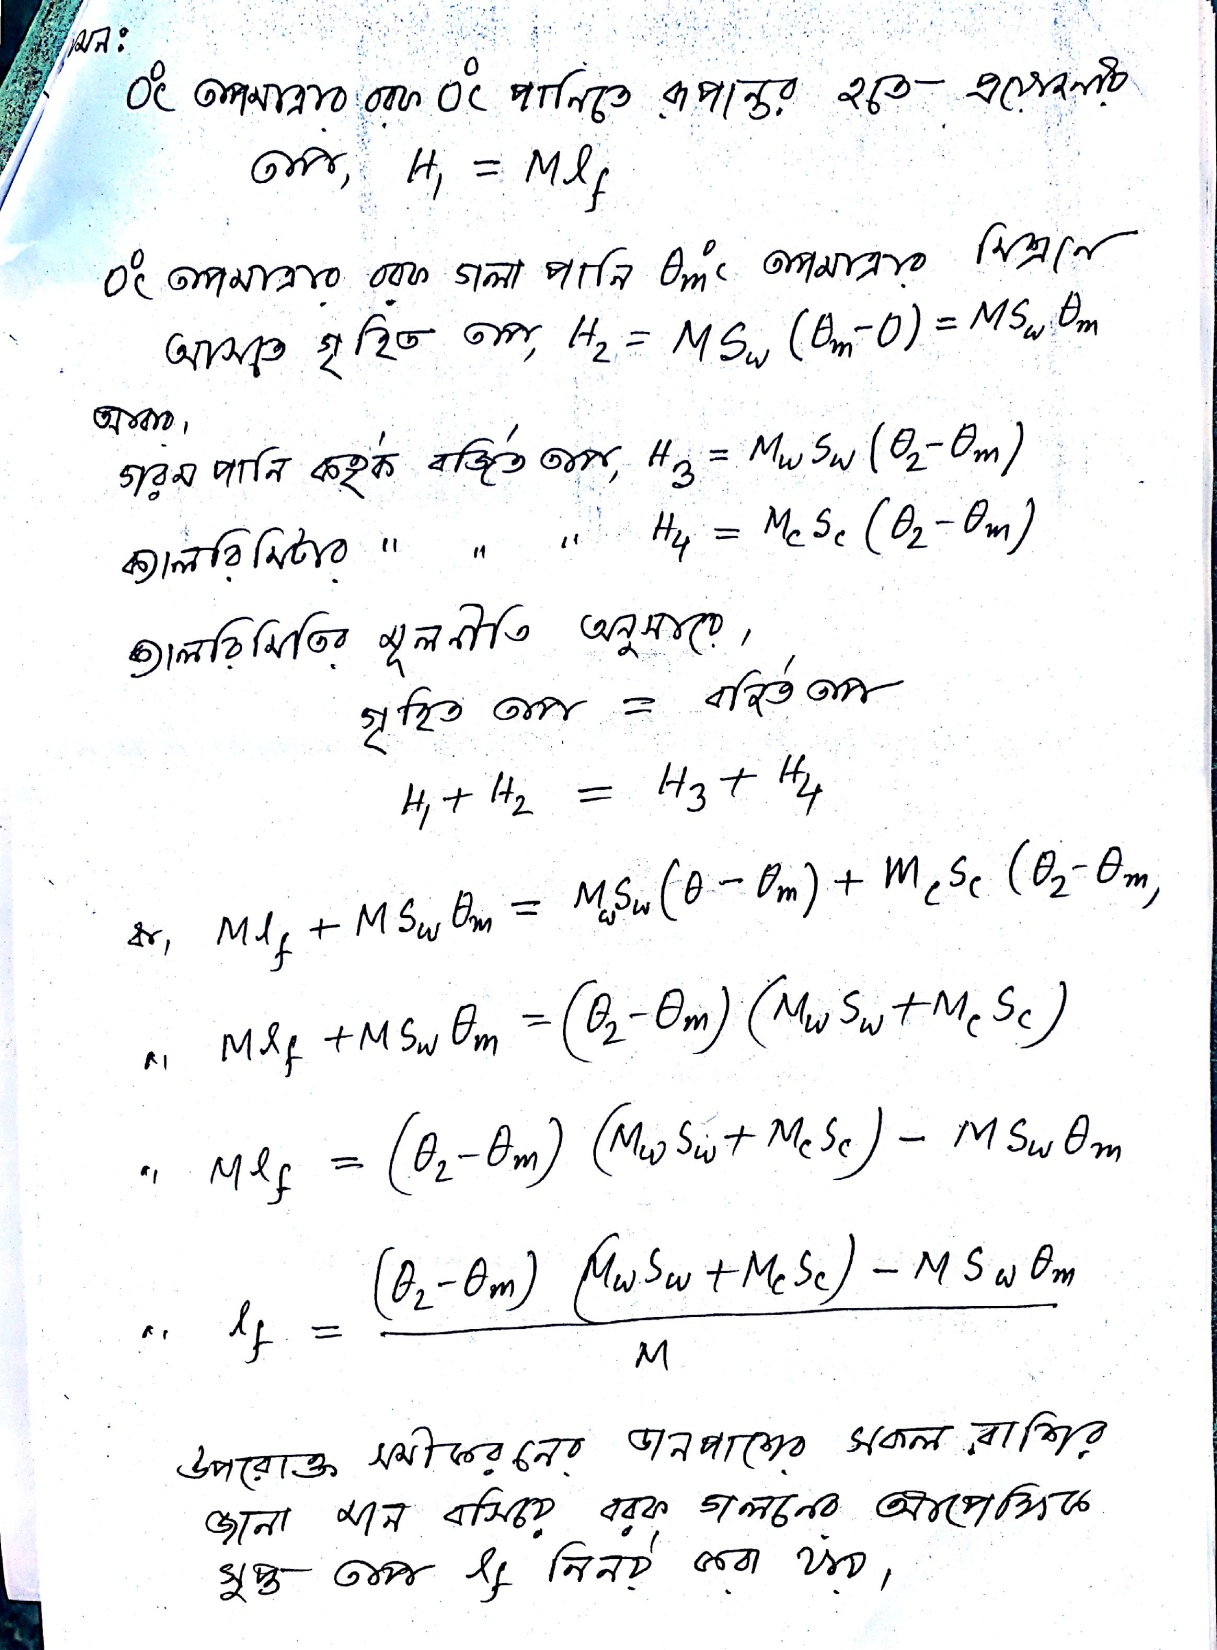 0°c তাপমাত্রার বরফ 0°c পানিতে রূপান্তর হতে প্রয়োজনীয়
তাপ, H₁ = Mlf
0°c তাপমাত্রার বরফ গলা পানি θm°c তাপমাত্রার মিশ্রনে
আসতে গৃহিত তাপ, H₂ = MSw (θm-0) = MSw θm
আবার,
গরম পানি কর্তৃক বর্জিত তাপ, H₃ = Mw Sw (θ₂-θm)
ক্যালরিমিটার " " " H₄ = Mc Sc (θ₂-θm)
ক্যালরিমিতির মূলনীতি অনুসারে,
গৃহিত তাপ = বর্জিত তাপ
H₁ + H₂ = H₃ + H₄
বা, Mlf + MSw θm = MwSw (θ - θm) + McSc (θ₂-θm)
" Mlf + MSw θm = (θ₂-θm) (Mw Sw + Mc Sc)
" Mlf = (θ₂-θm) (Mw Sw + Mc Sc) - MSw θm
" lf = (θ₂-θm) (Mw Sw + Mc Sc) - M Sw θm
M
উপরোক্ত সমীকরনের ডানপাশের সকল রাশির
জানা মান বসিয়ে বরফ গলনের আপেক্ষিক
সুপ্ত তাপ lf নির্নয় করা যায়,